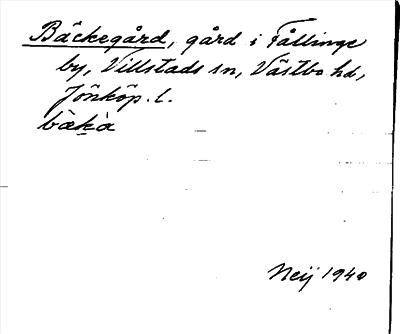 Bäckegård, gård i Fållinge
by, Villstads sn, Västbo hd,
Jönköp. l.
bæk̀a
Neij 1940